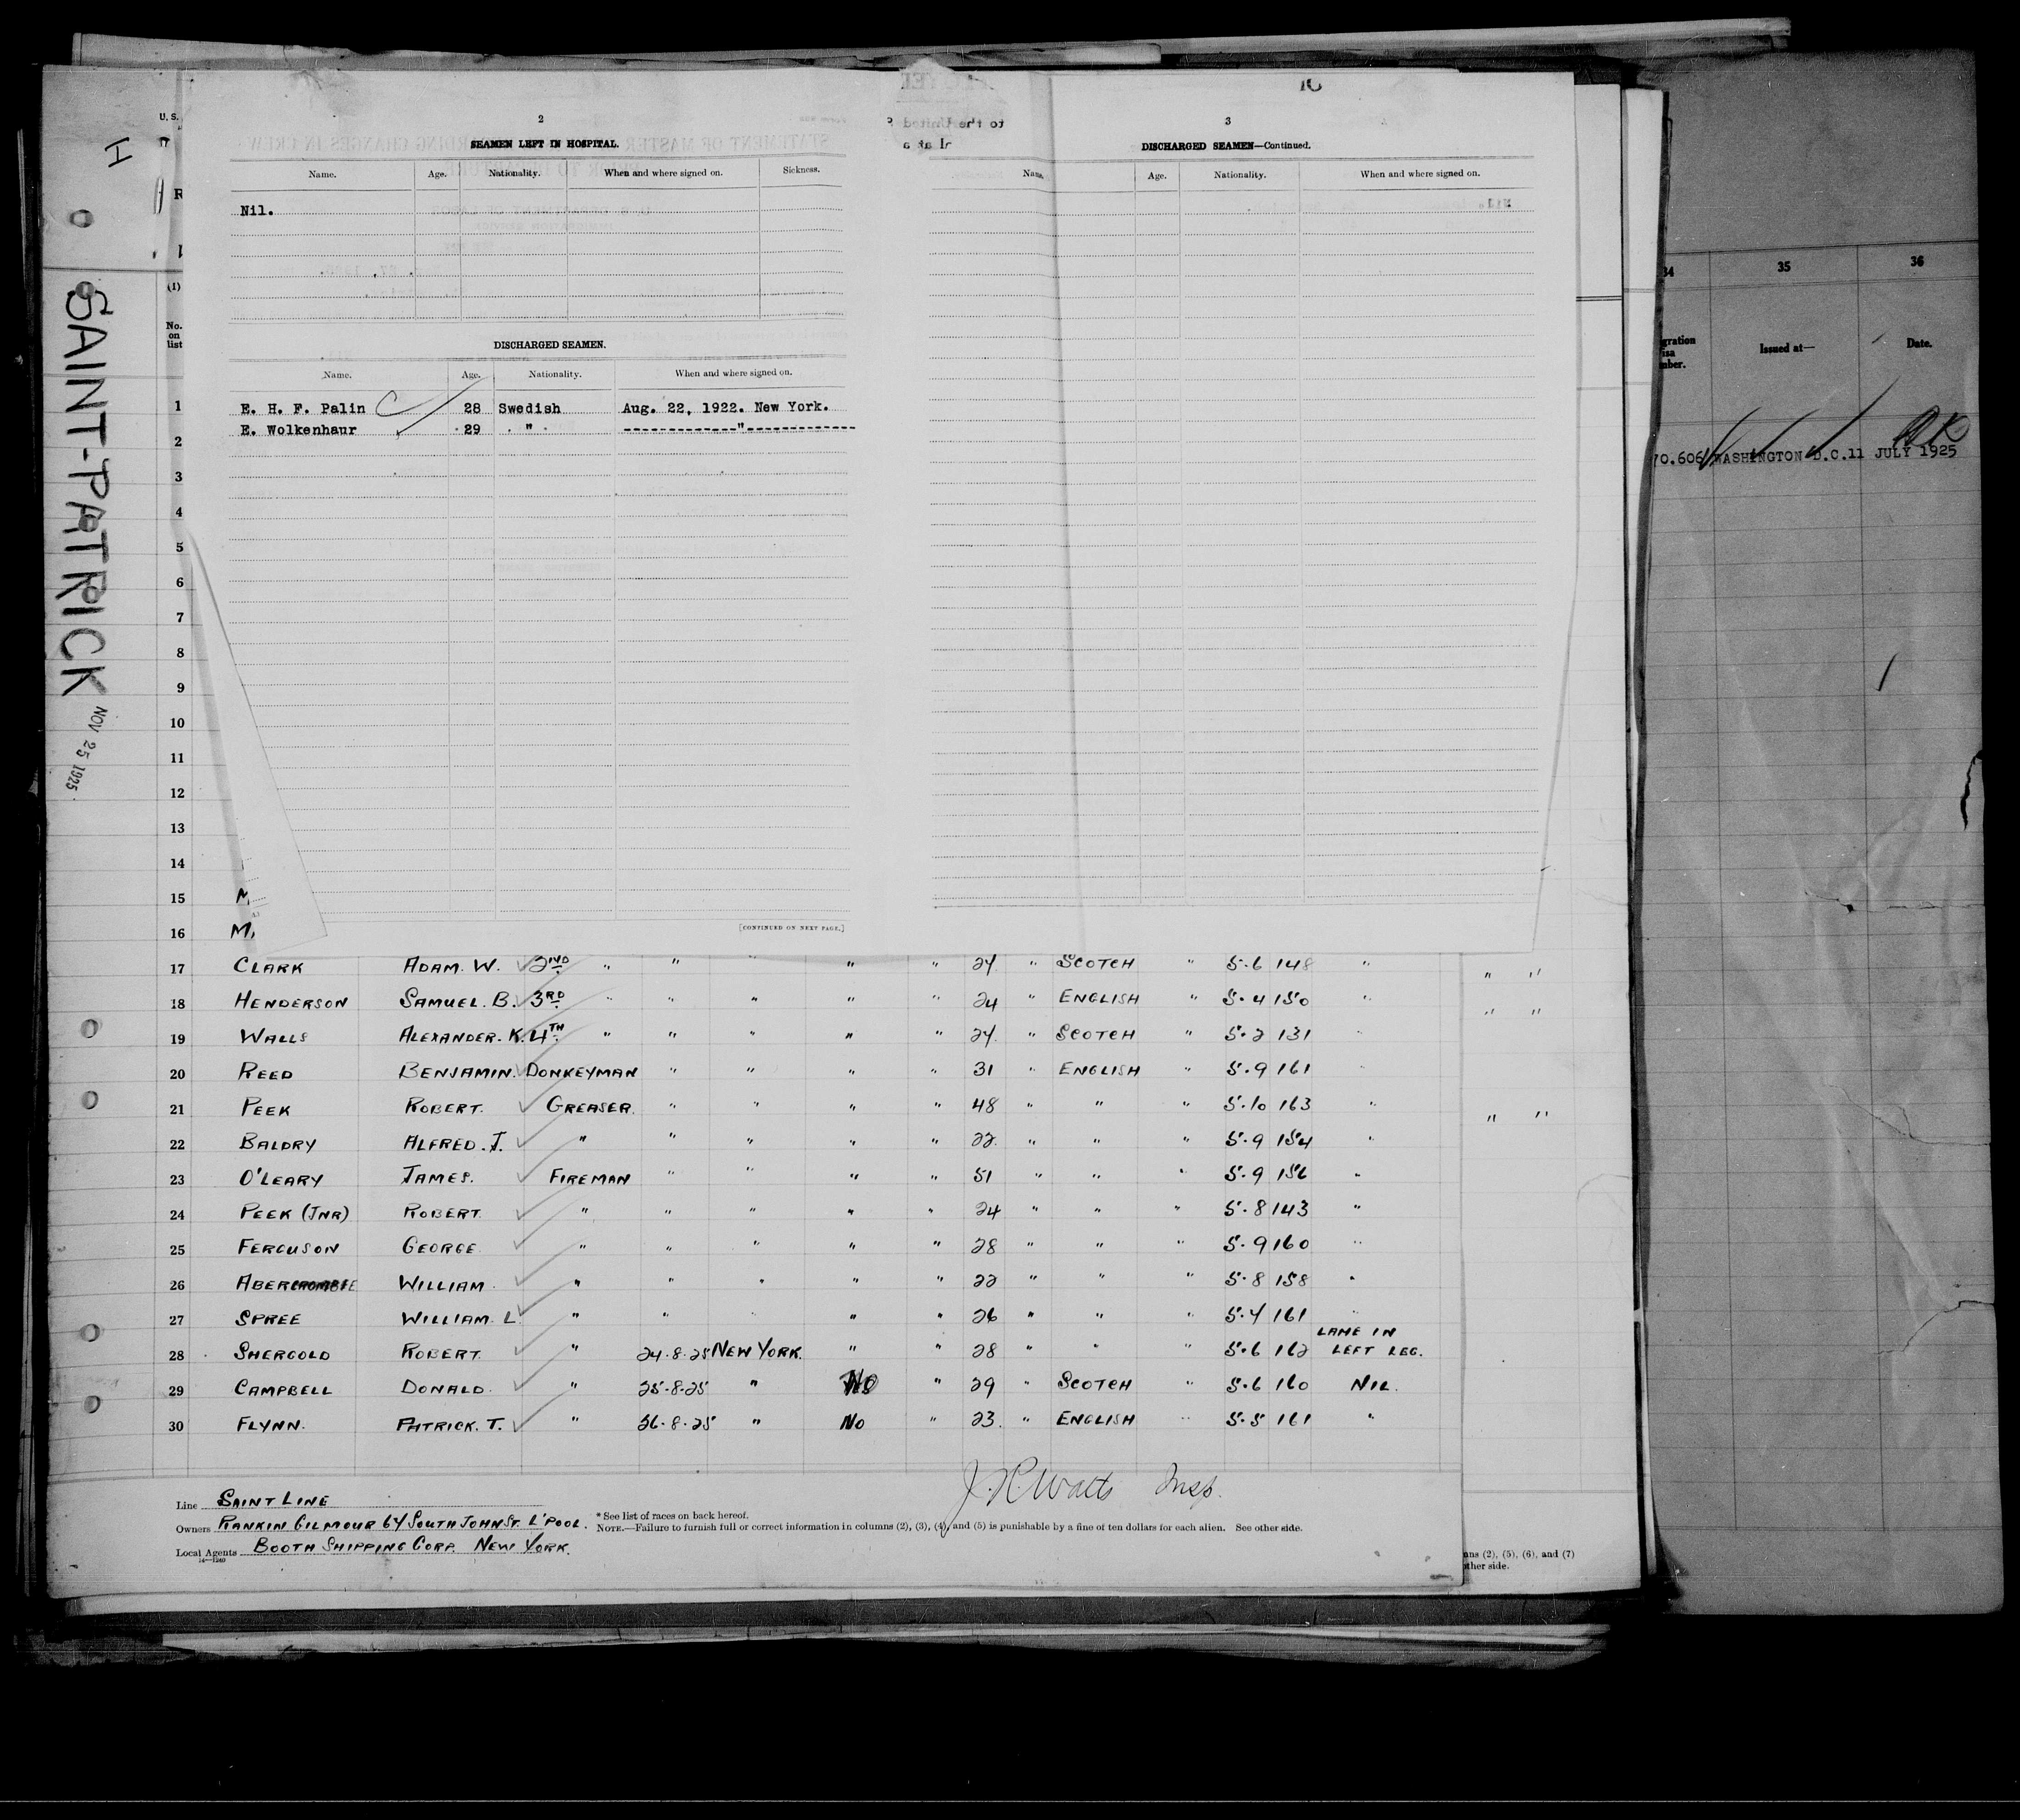 2
SEAMEN LEFT IN HOSPITAL.
Name. Age. Nationality. When and where signed on. Sickness.
Nil.
DISCHARGED SEAMEN.
Name. Age. Nationality. When and where signed on.
E. H. F. Palin 28 Swedish Aug. 22, 1922. New York.
E. Wolkenhaur 29 " "
[CONTINUED ON NEXT PAGE.]
3
DISCHARGED SEAMEN—Continued.
Name. Age. Nationality. When and where signed on.
H
SAINT-PATRICK
NOV 25 1925
U. S.
(1)
No. on list
1
2
3
4
5
6
7
8
9
10
11
12
13
14
15
16
17 CLARK ADAM. W. 2ND " " " " " 24 " SCOTCH " 5.6 148 "
18 HENDERSON SAMUEL. B. 3RD " " " " " 24 " ENGLISH " 5.4 150 "
19 WALLS ALEXANDER. K. 4TH " " " " " 24 " SCOTCH " 5.2 131 "
20 REED BENJAMIN. DONKEYMAN " " " " 31 " ENGLISH " 5.9 161 "
21 PEEK ROBERT. GREASER. " " " " 48 " " " 5.10 163 "
22 BALDRY ALFRED. J. " " " " " 22 " " " 5.9 154 "
23 O'LEARY JAMES. FIREMAN " " " " 51 " " " 5.9 156 "
24 PEEK (JNR) ROBERT. " " " " " 24 " " " 5.8 143 "
25 FERGUSON GEORGE " " " " " 28 " " " 5.9 160 "
26 ABERCROMBIE WILLIAM " " " " " 22 " " " 5.8 158 "
27 SPREE WILLIAM. L " " " " " 26 " " " 5.4 161 "
28 SHERGOLD ROBERT " 24.8.25 NEW YORK. " " 28 " " " 5.6 162 LAME IN LEFT LEG.
29 CAMPBELL DONALD. " 25.8.25 " NO " 29 " SCOTCH " 5.6 160 NIL.
30 FLYNN. PATRICK. T. " 26.8.25 " NO " 23 " ENGLISH " 5.5 161 "
J. H. Watts Insp.
Line SAINT LINE
Owners RANKIN GILMOUR 64 SOUTH JOHN ST. L'POOL.
Local Agents BOOTH SHIPPING CORP. NEW YORK.
14—1240
* See list of races on back hereof.
NOTE.—Failure to furnish full or correct information in columns (2), (3), (4), and (5) is punishable by a fine of ten dollars for each alien. See other side.
(2), (5), (6), and (7)
other side.
34 35 36
Issued at— Date.
70.606 WASHINGTON D.C. 11 JULY 1925
OK